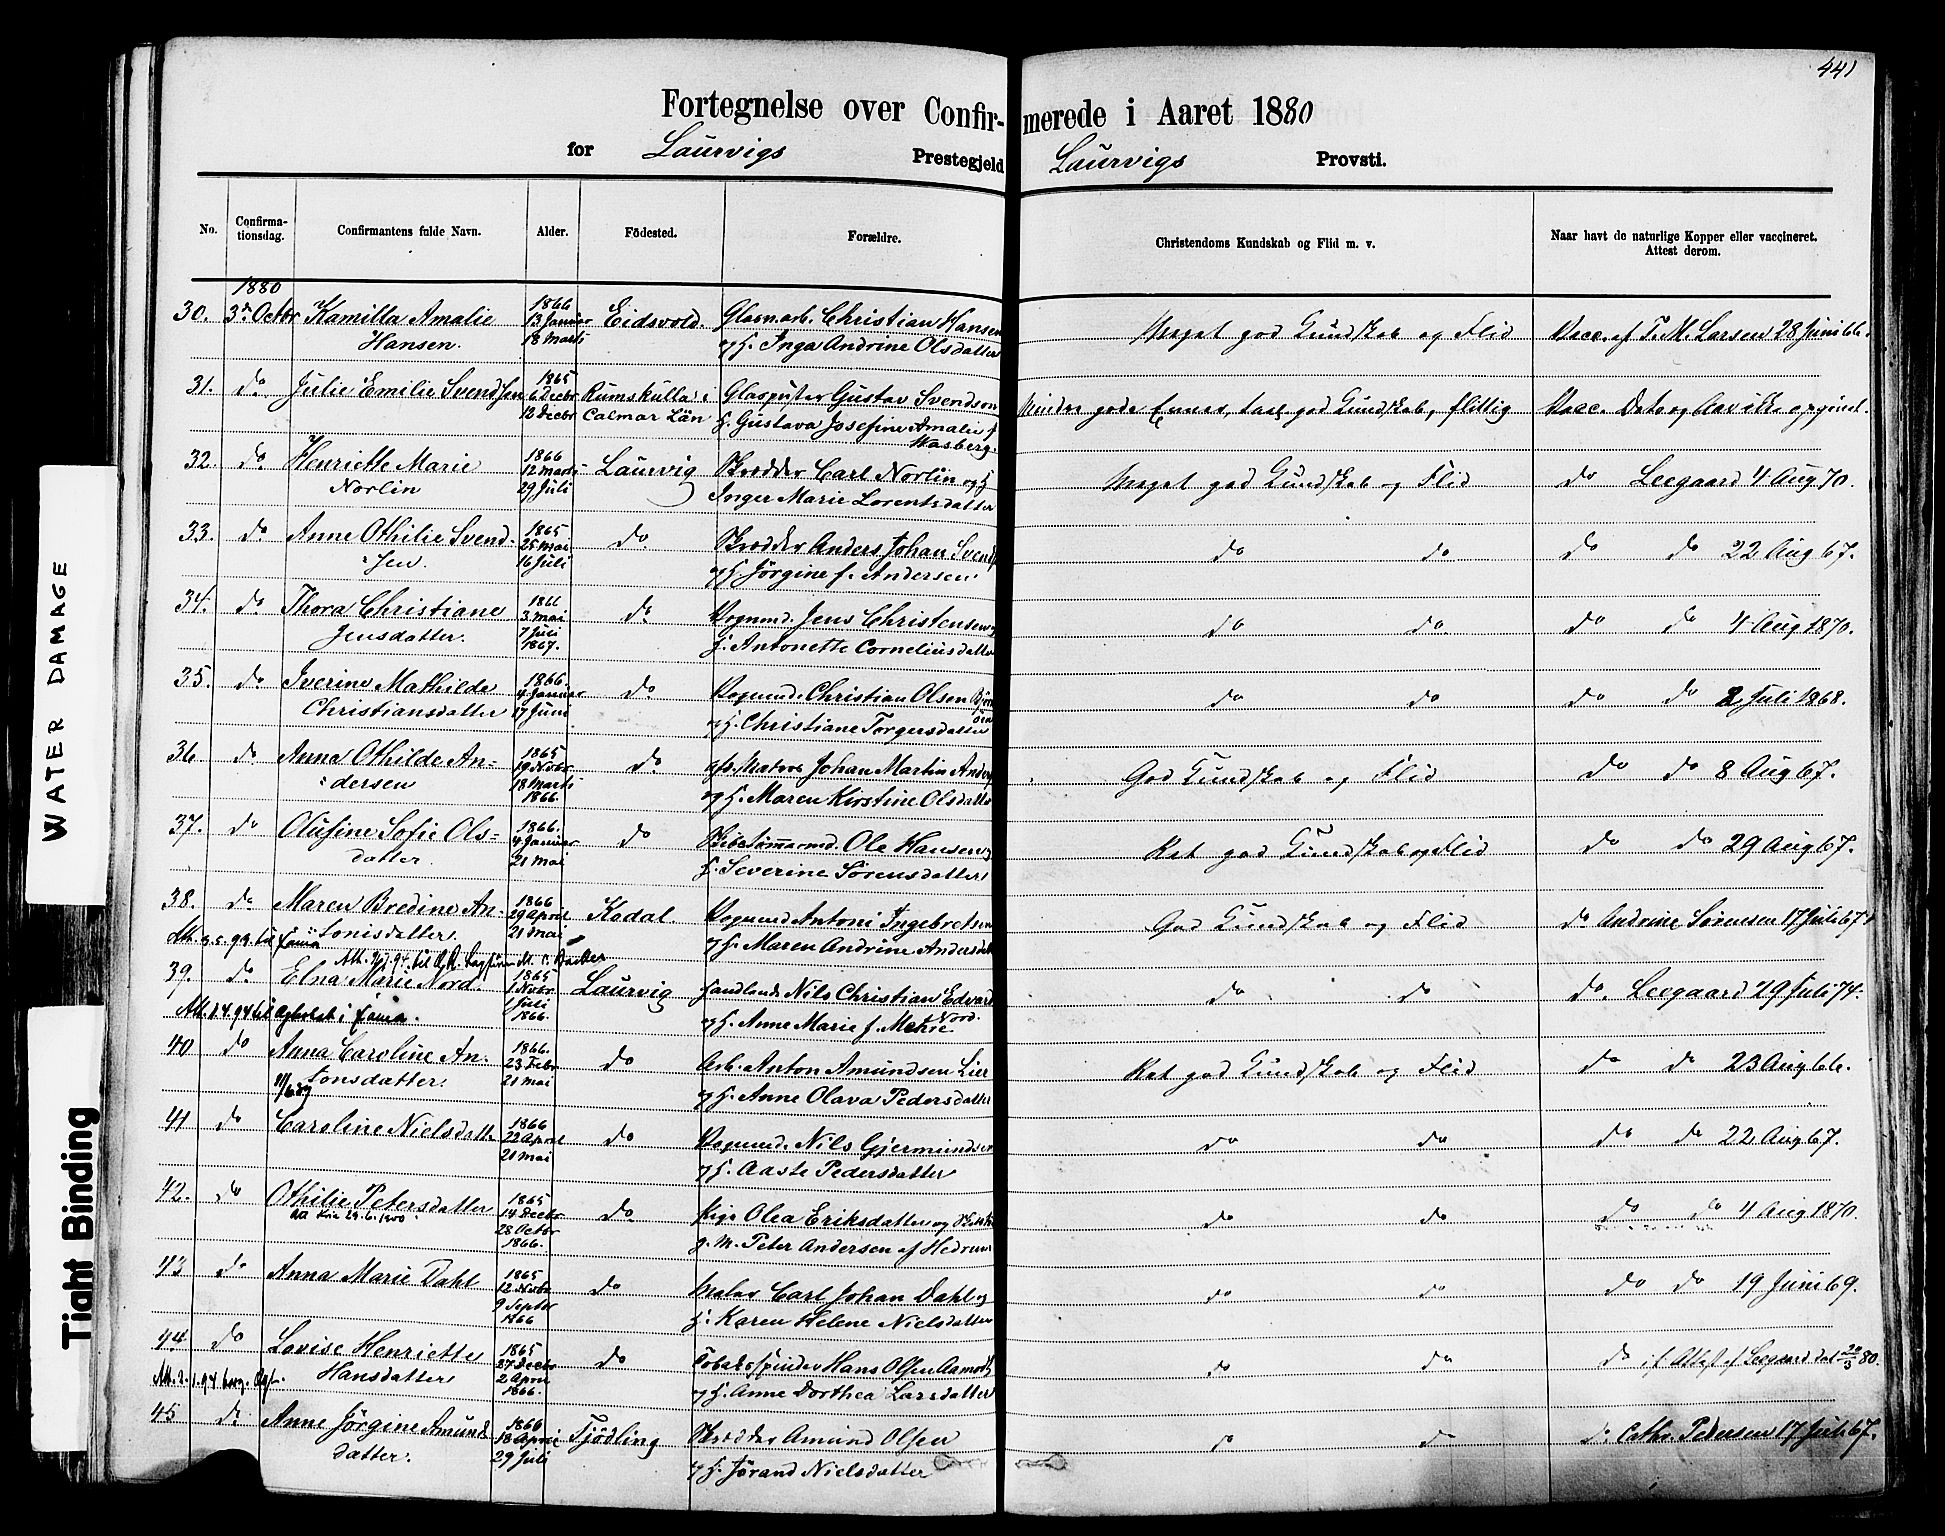 441
Fortegnelse over Confirmerede i Aaret 1880
for Laurvigs Prestegjeld Laurvigs Provsti.
No. Confirmationsdag. Confirmantens fulde Navn. Alder. Födested. Forældre. Christendoms Kundskab og Flid m. v. Naar havt de naturlige Kopper eller vaccineret. Attest derom.
1880
30. 3die Octbr Kamilla Amalie 1866 13 Januar Eidsvold. Glasm.arb. Christian Hansen Meget god Kundskab og Flid Vacc. af T. M. Larsen 28 Juni 66.
Hansen. 18 Marts og H. Inga Andrine Olsdatter
31. do Julie Emilie Svendsen 1865 6 Decbr Rumskulla i Glaspuster Gustav Svendson Mindre gode Evner, god Kundskab, flittig Vacc. Dato og Aar ikke opgivet.
12 Decbr Calmar Län H. Gustava Josefine Amalie f. Wasberg.
32. do Henriette Marie 1866 12 Marts Laurvig Skrædder Carl Norlin og H Meget god Kundskab og Flid do Leegaard 4 Aug 70.
Norlin 29 Juli Inger Marie Lorentsdatter
33. do Anne Othilie Svend- 1865 25 Mai do Skrædder Anders Johan Svends do do do do 22 Aug 67.
sen. 16 Juli og H. Jörgine f. Andersen
34. do Thora Christiane 1866 3 Mai do Vognmd. Jens Christensen og do do do do 4 Aug 1870.
Jensdatter. 7 Juli 1867. H. Antonette Corneliusdatter
35. do Iverine Mathilde 1866. 4 Januar do Vognmd. Christian Olsen do do do do 2 Juli 1868.
Christiansdatter 17 Juni og H. Christiane Torgersdatter
36. do Anna Othilde An- 1865 19 Novbr do afd. Matros Johan Martin Anders God Kundskab og Flid do do 8 Aug 67.
dersen 18 Marts 1866. og H. Maren Kirstine Olsdatter
37. do Olufine Sofie Ols- 1866. 4 Januar do Skibstömmermd. Ole Hansen og Ret god Kundskab og Flid do do 29 Aug 67.
datter. 21 Mai H. Severine Sörensdatter
38. do Maren Bredine An- 1866 29 April Kodal. Vognmd Antoni Ingebretsen God Kundskab og Flid do Andrine Sörensen 17 Juli 67
tonisdatter. 21 Mai og H. Maren Andrine Andersdatter
39. do Elna Marie Nord. 1865 1 Novbr Laurvig Handlende Nils Christian Edvard do do do. Leegaard 29 Juli 74.
1 Juli 1866. Nord. og H. Anne Marie f. Mehre
40 do Anna Caroline An- 1866. 23 Febr do Arb. Anton Amundsen Lier Ret god Kundskab og Flid do do 23 Aug 66.
tonsdatter. 21 Mai og H. Anne Olava Pedersdatter
41 do Caroline Nielsdatter 1866 22 April do Vognmd. Nils Gjermundsen do do do do 22 Aug 67.
21 Mai og H. Aaste Pedersdatter
42. do Othilie Petersdatter 1865 14 Decbr do Pige Olea Eriksdatter og do do do do 4 Aug 1870.
28 Octbr 1866. g. M. Peter Andersen af Hedrum
43 do Anna Marie Dahl 1865 12 Novbr do Maler Carl Johan Dahl og do do do do 19 Juni 69.
9 Septbr 1866 H. Karen Helene Nielsdatter
44. do Lovise Henriette 1865 27 Decbr do Tobaksspinder Hans Olsen Aamodt do do do if Attest af Leegaard dat 20/3 80.
Hansdatter 2 April 1866. og H. Anne Dorthea Larsdatter
45 do Anne Jörgine Amunds 1866 18 April Tjödling Skrædder Amund Olsen do do do Cathr. Pedersen 17 Juli 67.
datter. 29 Juli og H. Jörand Nielsdatter
WATER DAMAGE
Tight Binding